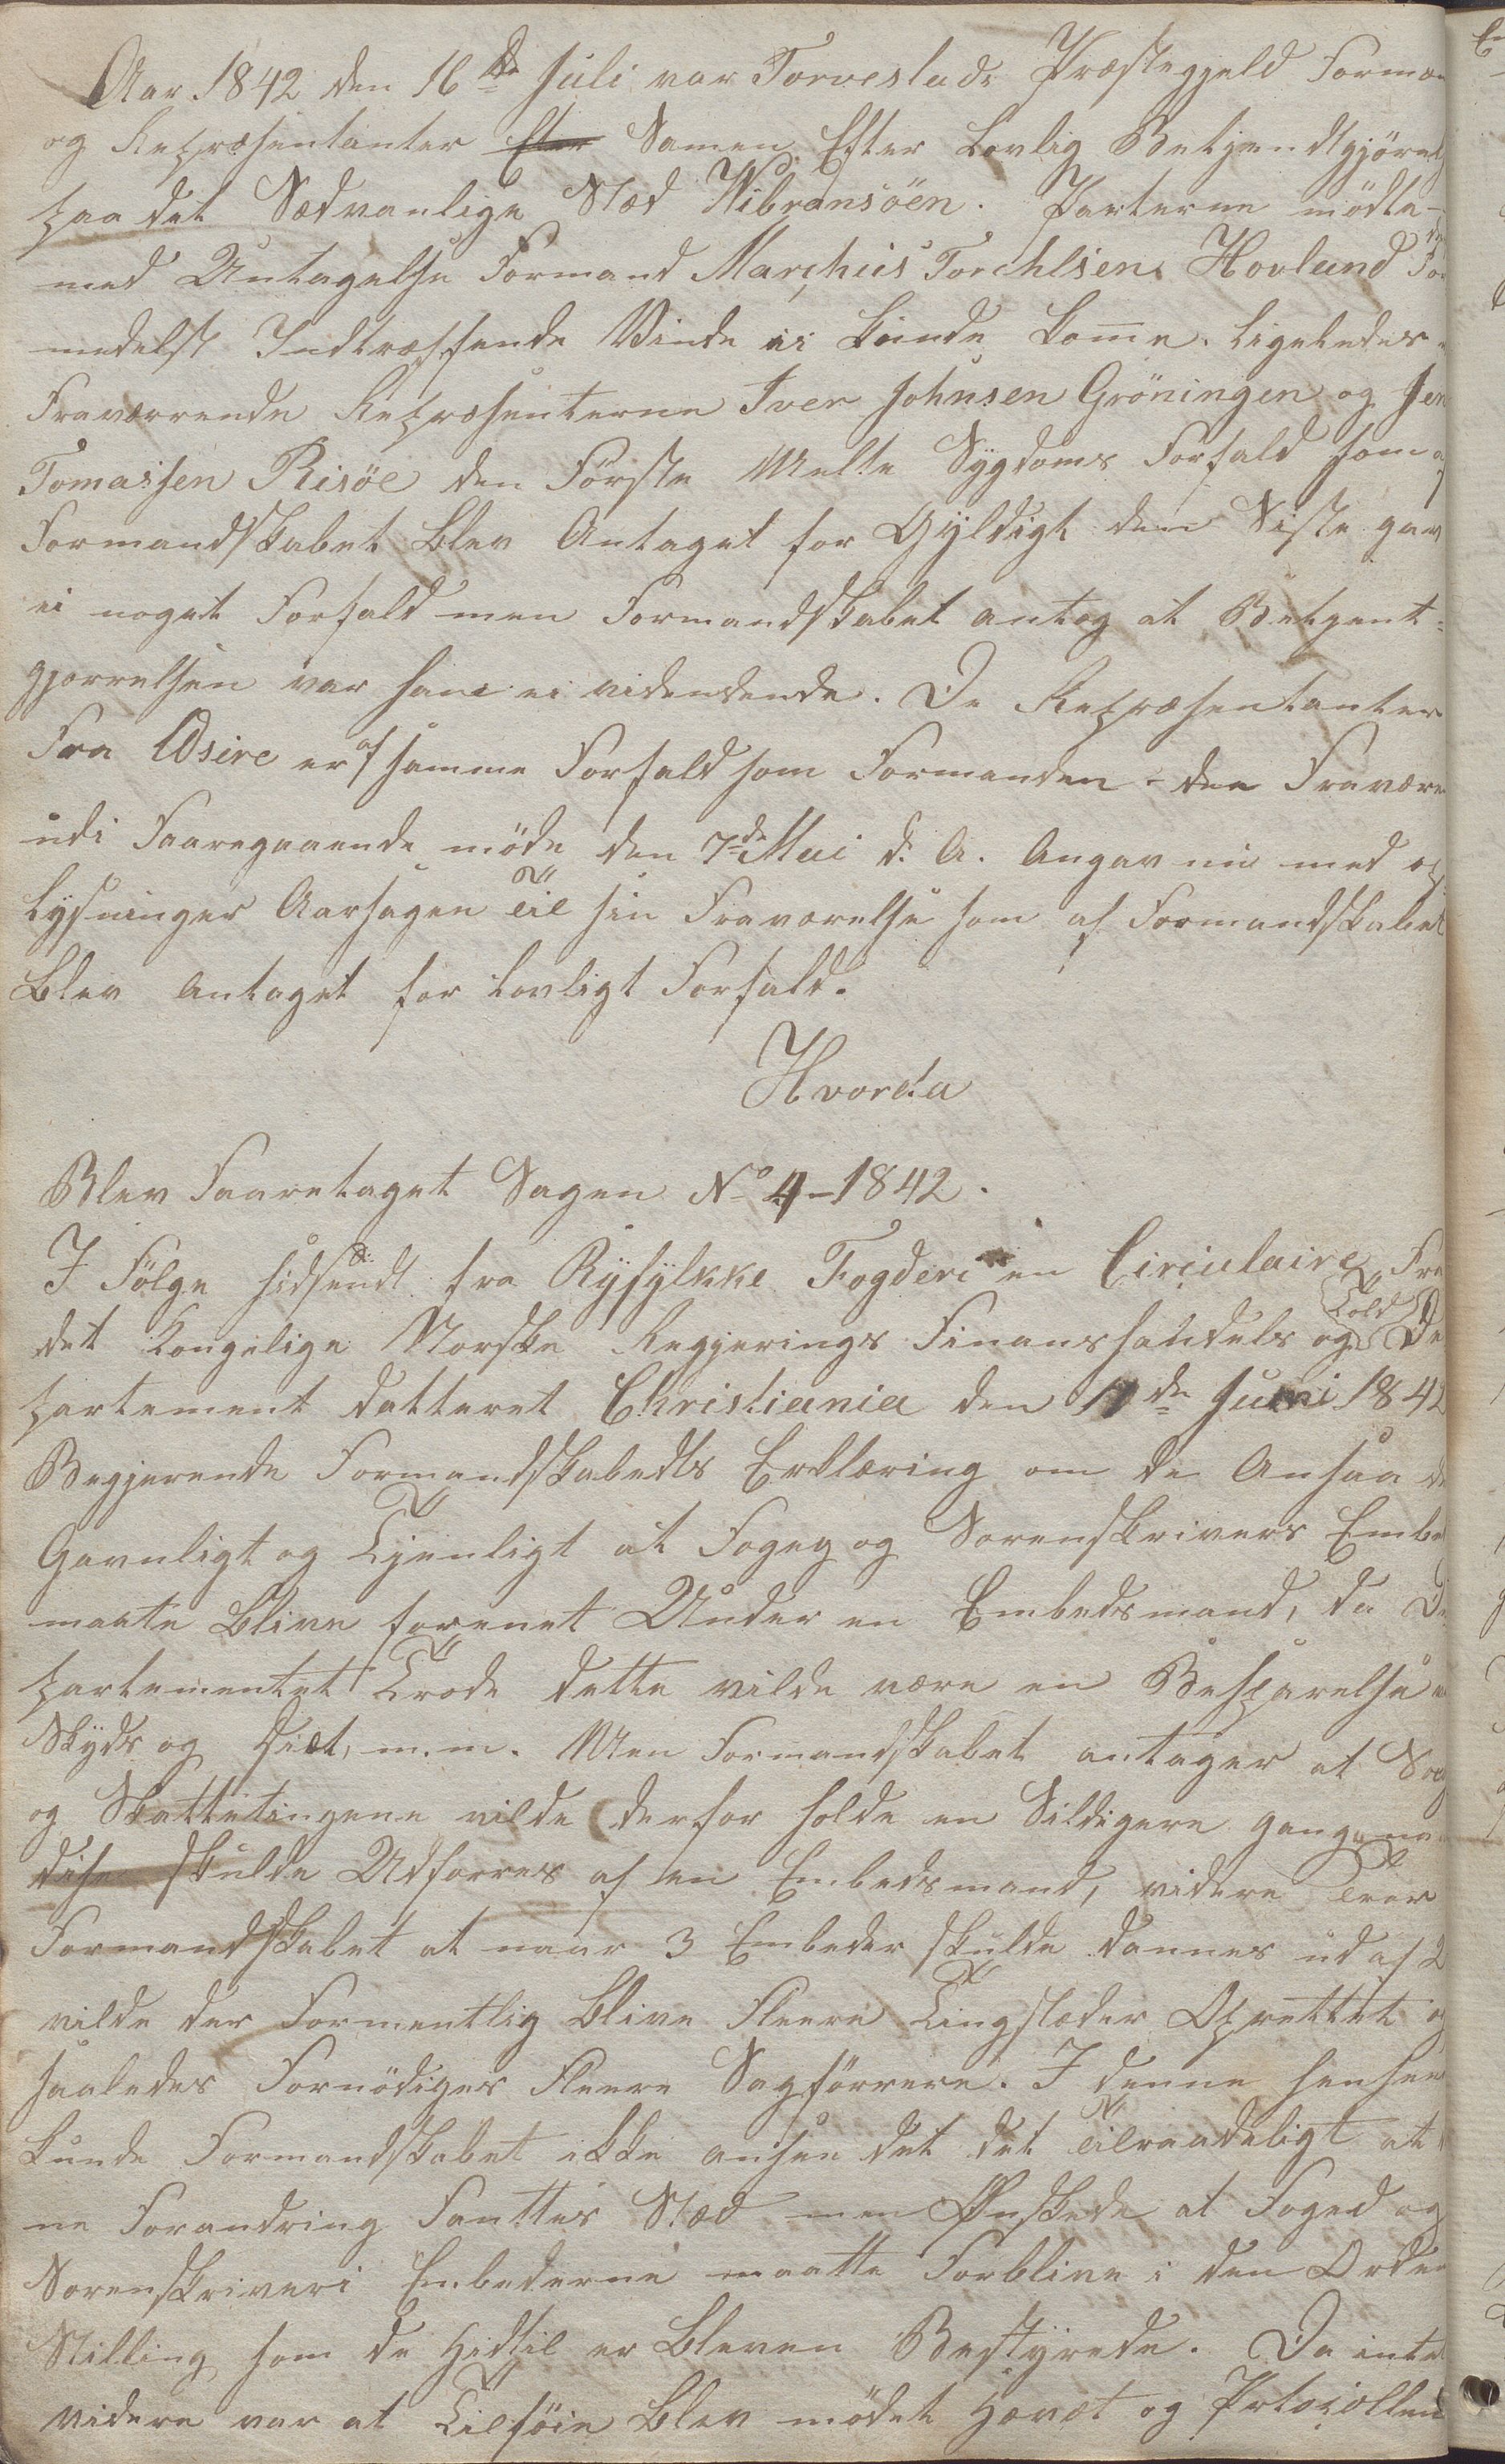 Aar 1842 den 16de Juli var Torveslads Præstegjeld Formæn
og Repræsentanter Efter Samen Efter Lovlig Bekjendtgjörels
paa det Sædvanlige Stæd Wibransöen. Parterne mödte
med Untagelse Formand Marchus Torchlsen Hovland For
medelst Indtræffende Vinde ei kunde komme. Ligeledes
Fraværrende Repræsenterne Iver Johnsen Gröningen og Jen
Tomassen Risöe den Förste Melte Sygdoms Forfald som af
Formandskabet blev Antaget for Gyldigt den Siste gav
ei noget Forfald men Formandskabet antog at Bekjent-
gjorrelsen var ham ei videndende. De Repræsentanter
Fra Udsire er af samme Forfald som Formanden - den Fravære
udi Faaregaaende möde den 7de Mai d. A. Angav nu med op
lysninger Aarsagen til sin Fraværelse som af Formandskabet
Blev antaget for Lovligt Forfald.
Hvorda
Blev Faaretaget Sagen No 4-1842.
I Fölge hidsendt fra Ryfylkke Fogderi en Circulaire Fra
det Kongelige Norske Regjerings Finans handels og Told De
partement datteret Christiania den 11de Juni 1842
Begjerende Formandskabedts Erklæring om de Ansaa de
Gavnligt og Tjenligt at Fogeg og Sorenskrivers Embe
maate blive forenet Under en Embedsmand, da De
partementet Trode dette vilde være en Besparelse
Skyds og Diæt, m.m. Men Formandskabet antager at Som
og Skattetingene vilde derfor holde en Sildigere gang
disse skulde Udförres af en Embedsmand, videre troer
Formandskabet at naar 3 Embeder skulde dannes ud af 2
vilde der Formentlig blive Fleere Tingstæder Oprettet og
saaledes Fornödiges Fleere Sagförrere. I denne hensee
kunde Formandskabet ikke ansee det det tilraadeligt at
ne Forandring Fanttes Stæd men Önskede at Foged og
Sorenskriveri Embederne maatte Forblive i den Orden
Stilling som de Hidtil er Bleven Bestyrede. Da intet
videre var at Tilföie Blev mödet Hævet og Prtocollen